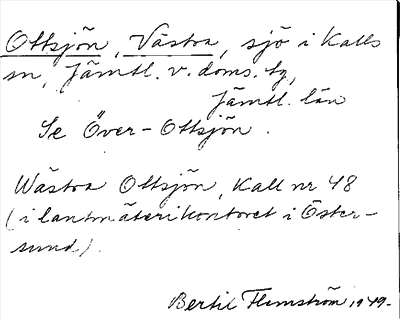 Ottsjön, Västra, sjö i Kalls
sn, Jämtl. v. doms. tg,
Jämtl. län
Se Över-Ottsjön.
Wästra Ottsjön, Kall nr 48
(i lantmäterikontoret i Öster-
sund).
Bertil Flemström, 1949.